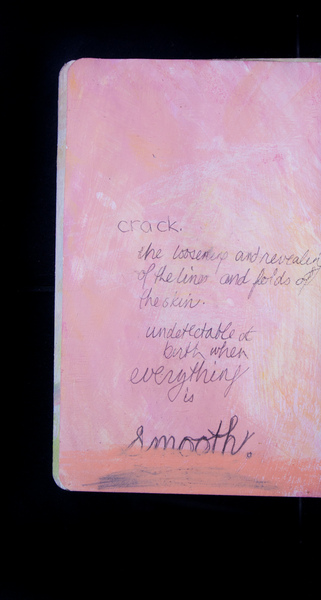 crack.
the loosening and revealin
of the lines and folds of
the skin.
undetectable at
birth when
everything
is
smooth.